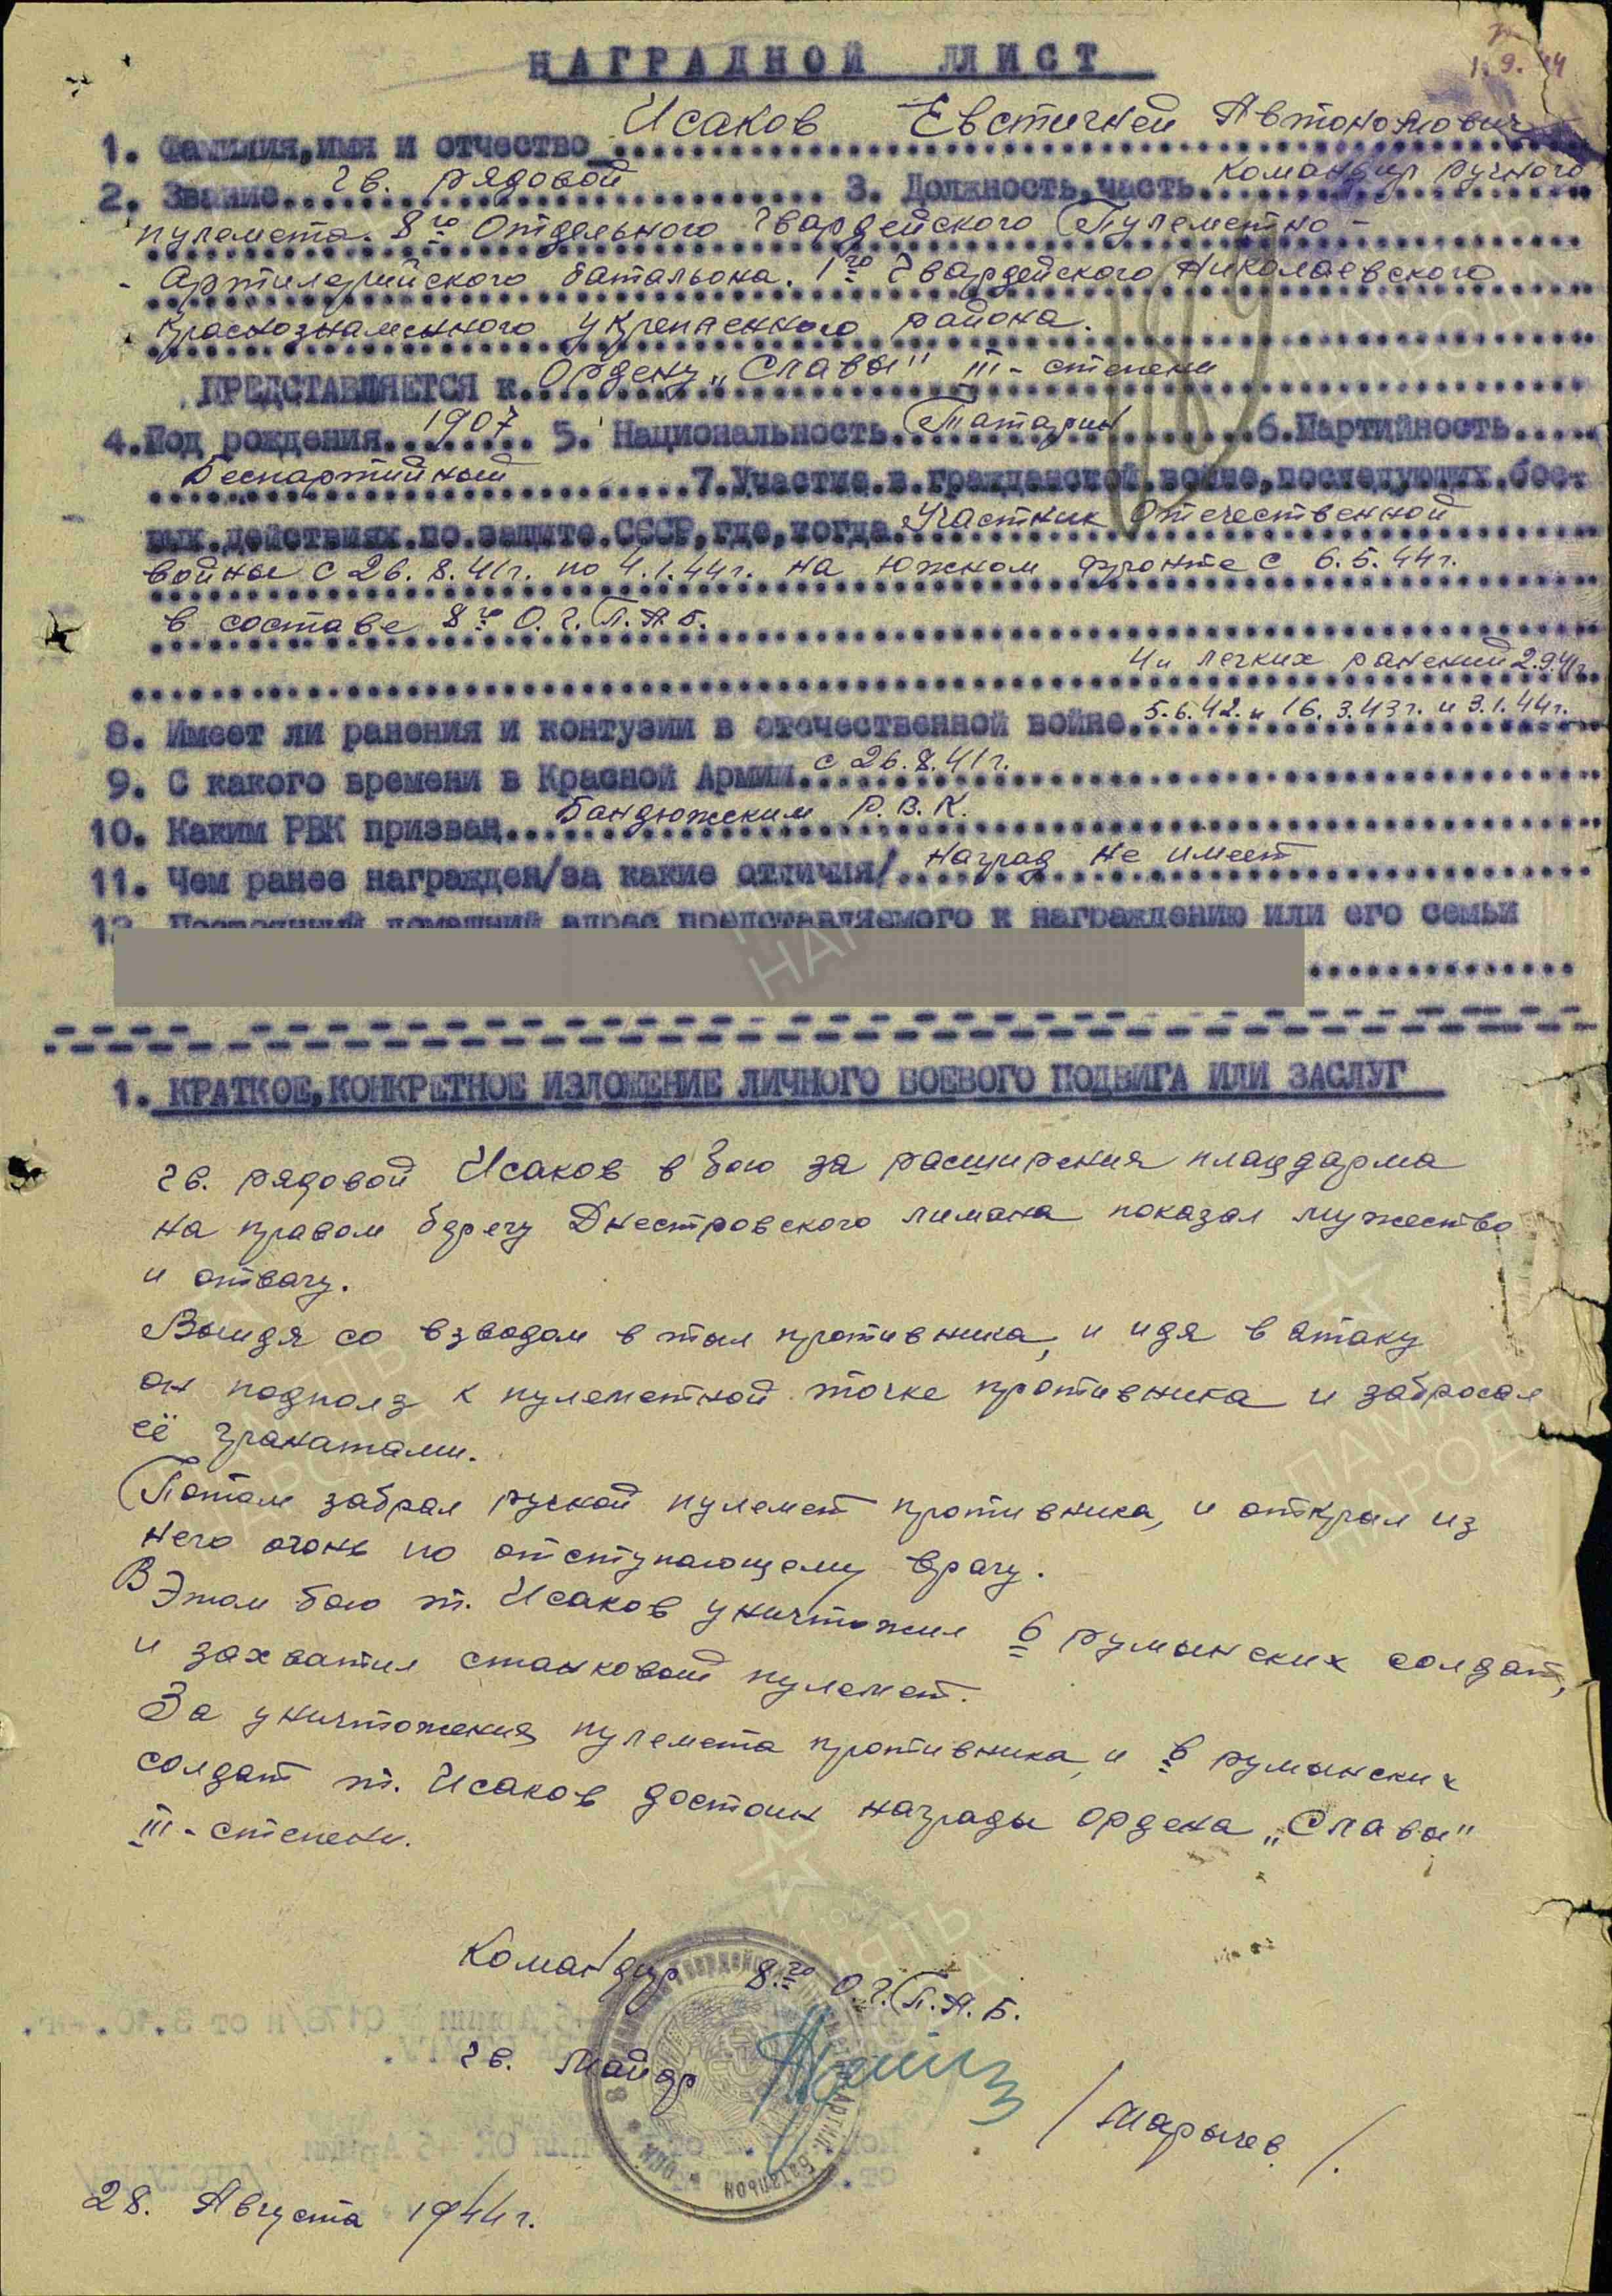 НАГРАДНОЙ ЛИСТ
1.9.44
Исаков Евстигней Автономович
1. Фамилия, имя и отчество
2. Звание гв. рядовой 3. Должность, часть командир ручного
пулемета. 8го Отдельного Гвардейского Пулеметно -
- Артилерийского батальона. 1го Гвардейского Николаевского
Краснознаменного укрепленного района.
ПРЕДСТАВЛЯЕТСЯ к Ордену „Славы" III - степени
4. Год рождения 1907 5. Национальность Татарин 6. Партийность
Беспартийный 7. Участие в гражданской войне, последующих бое-
вых действиях по защите СССР, где, когда Участник Отечественной
войны с 26.8.41г. по 4.1.44г. на Южном фронте с 6.5.44г.
в составе 8го О.Г.П.А.Б.
4и легких ранений 2.9.41г.
8. Имеет ли ранения и контузии в отечественной войне 5.6.42. и 16.3.43г. и 3.1.44г.
9. С какого времени в Красной Армии с 26.8.41г.
10. Каким РВК призван Бандюжским Р.В.К.
11. Чем ранее награжден/за какие отличия/ Наград не имеет
12. Постоянный домашний адрес представляемого к награждению или его семьи
1. КРАТКОЕ, КОНКРЕТНОЕ ИЗЛОЖЕНИЕ ЛИЧНОГО БОЕВОГО ПОДВИГА ИЛИ ЗАСЛУГ
гв. рядовой Исаков в бою за расширения плацдарма
на правом берегу Днестровского лимана показал мужество
и отвагу.
Выйдя со взводом в тыл противника, и идя в атаку
он подполз к пулеметной точке противника и забросал
её гранатами.
Потом забрал ручной пулемет противника, и открыл из
него огонь по отступающему врагу.
В Этом бою т. Исаков уничтожил 6 румынских солдат,
и захватил станковый пулемет.
За уничтожения пулемета противника, и 6 румынских
солдат т. Исаков достоин награды ордена „Славы"
III - степени.
Командир 8.го О.Г.П.А.Б.
гв. Майор /Марычев/.
28. Августа 1944г.
ПАМЯТЬ
НАРОДА